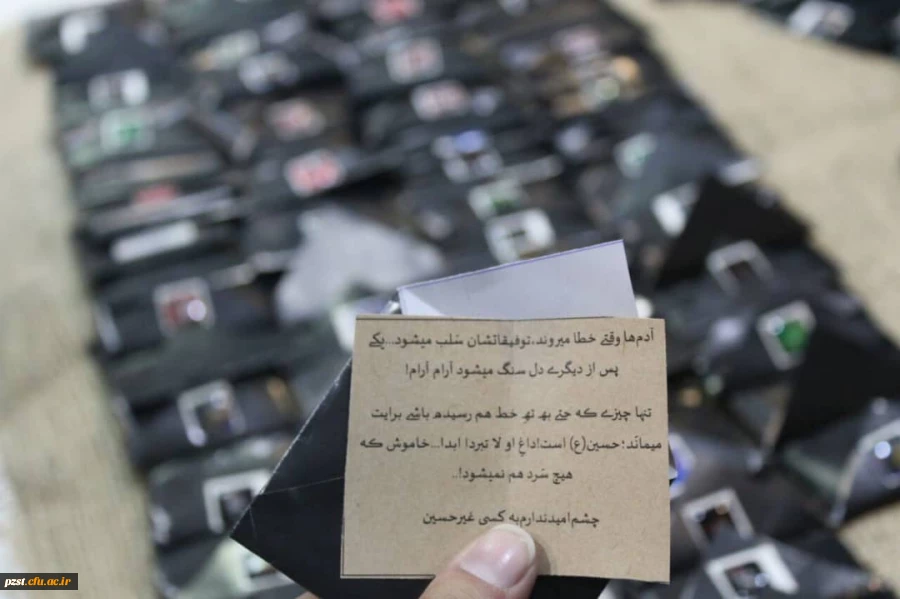 آدم‌ها وقتے خطا میروند،توفیقاتشان سَلب میشود...یکے
پس از دیگرے دل سنگ میشود آرام آرام!
تنها چیزے که حتے به تهِ خط هم رسیده باشے برایت
میماند؛حسین(ع) است!داغِ او لا تبرد! ابدا...خاموش که
هیچ سَرد هم نمیشود!..
چشم امیدندارم به کسی غیرحسین
pzst.cfu.ac.ir